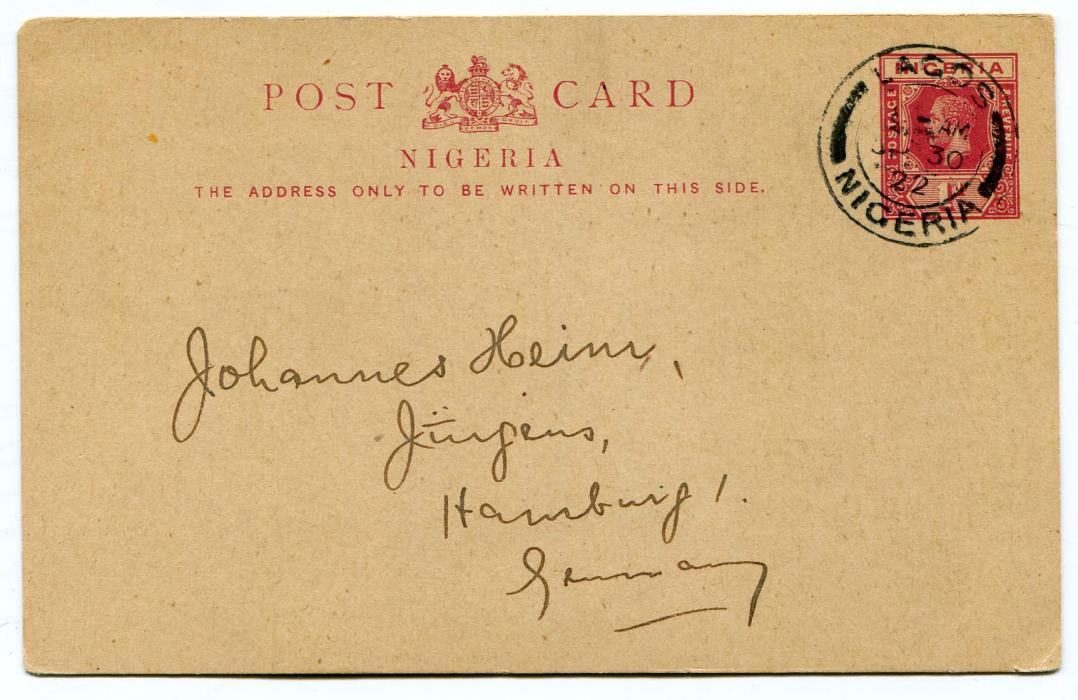 POST CARD
DIEU ET MON DROIT
NIGERIA
THE ADDRESS ONLY TO BE WRITTEN ON THIS SIDE.
NIGERIA
POSTAGE & REVENUE
LAGOS
AM
30
22
NIGERIA
Johannes Heinr,
Jürgens,
Hamburg 1.
Germany